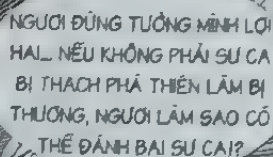 NGƯƠI ĐỪNG TƯỞNG MÌNH LỢI
HẠI... NẾU KHÔNG PHẢI SƯ CA
BỊ THẠCH PHÁ THIÊN LÀM BỊ
THƯƠNG, NGƯƠI LÀM SAO CÓ
THỂ ĐÁNH BẠI SƯ CA!?